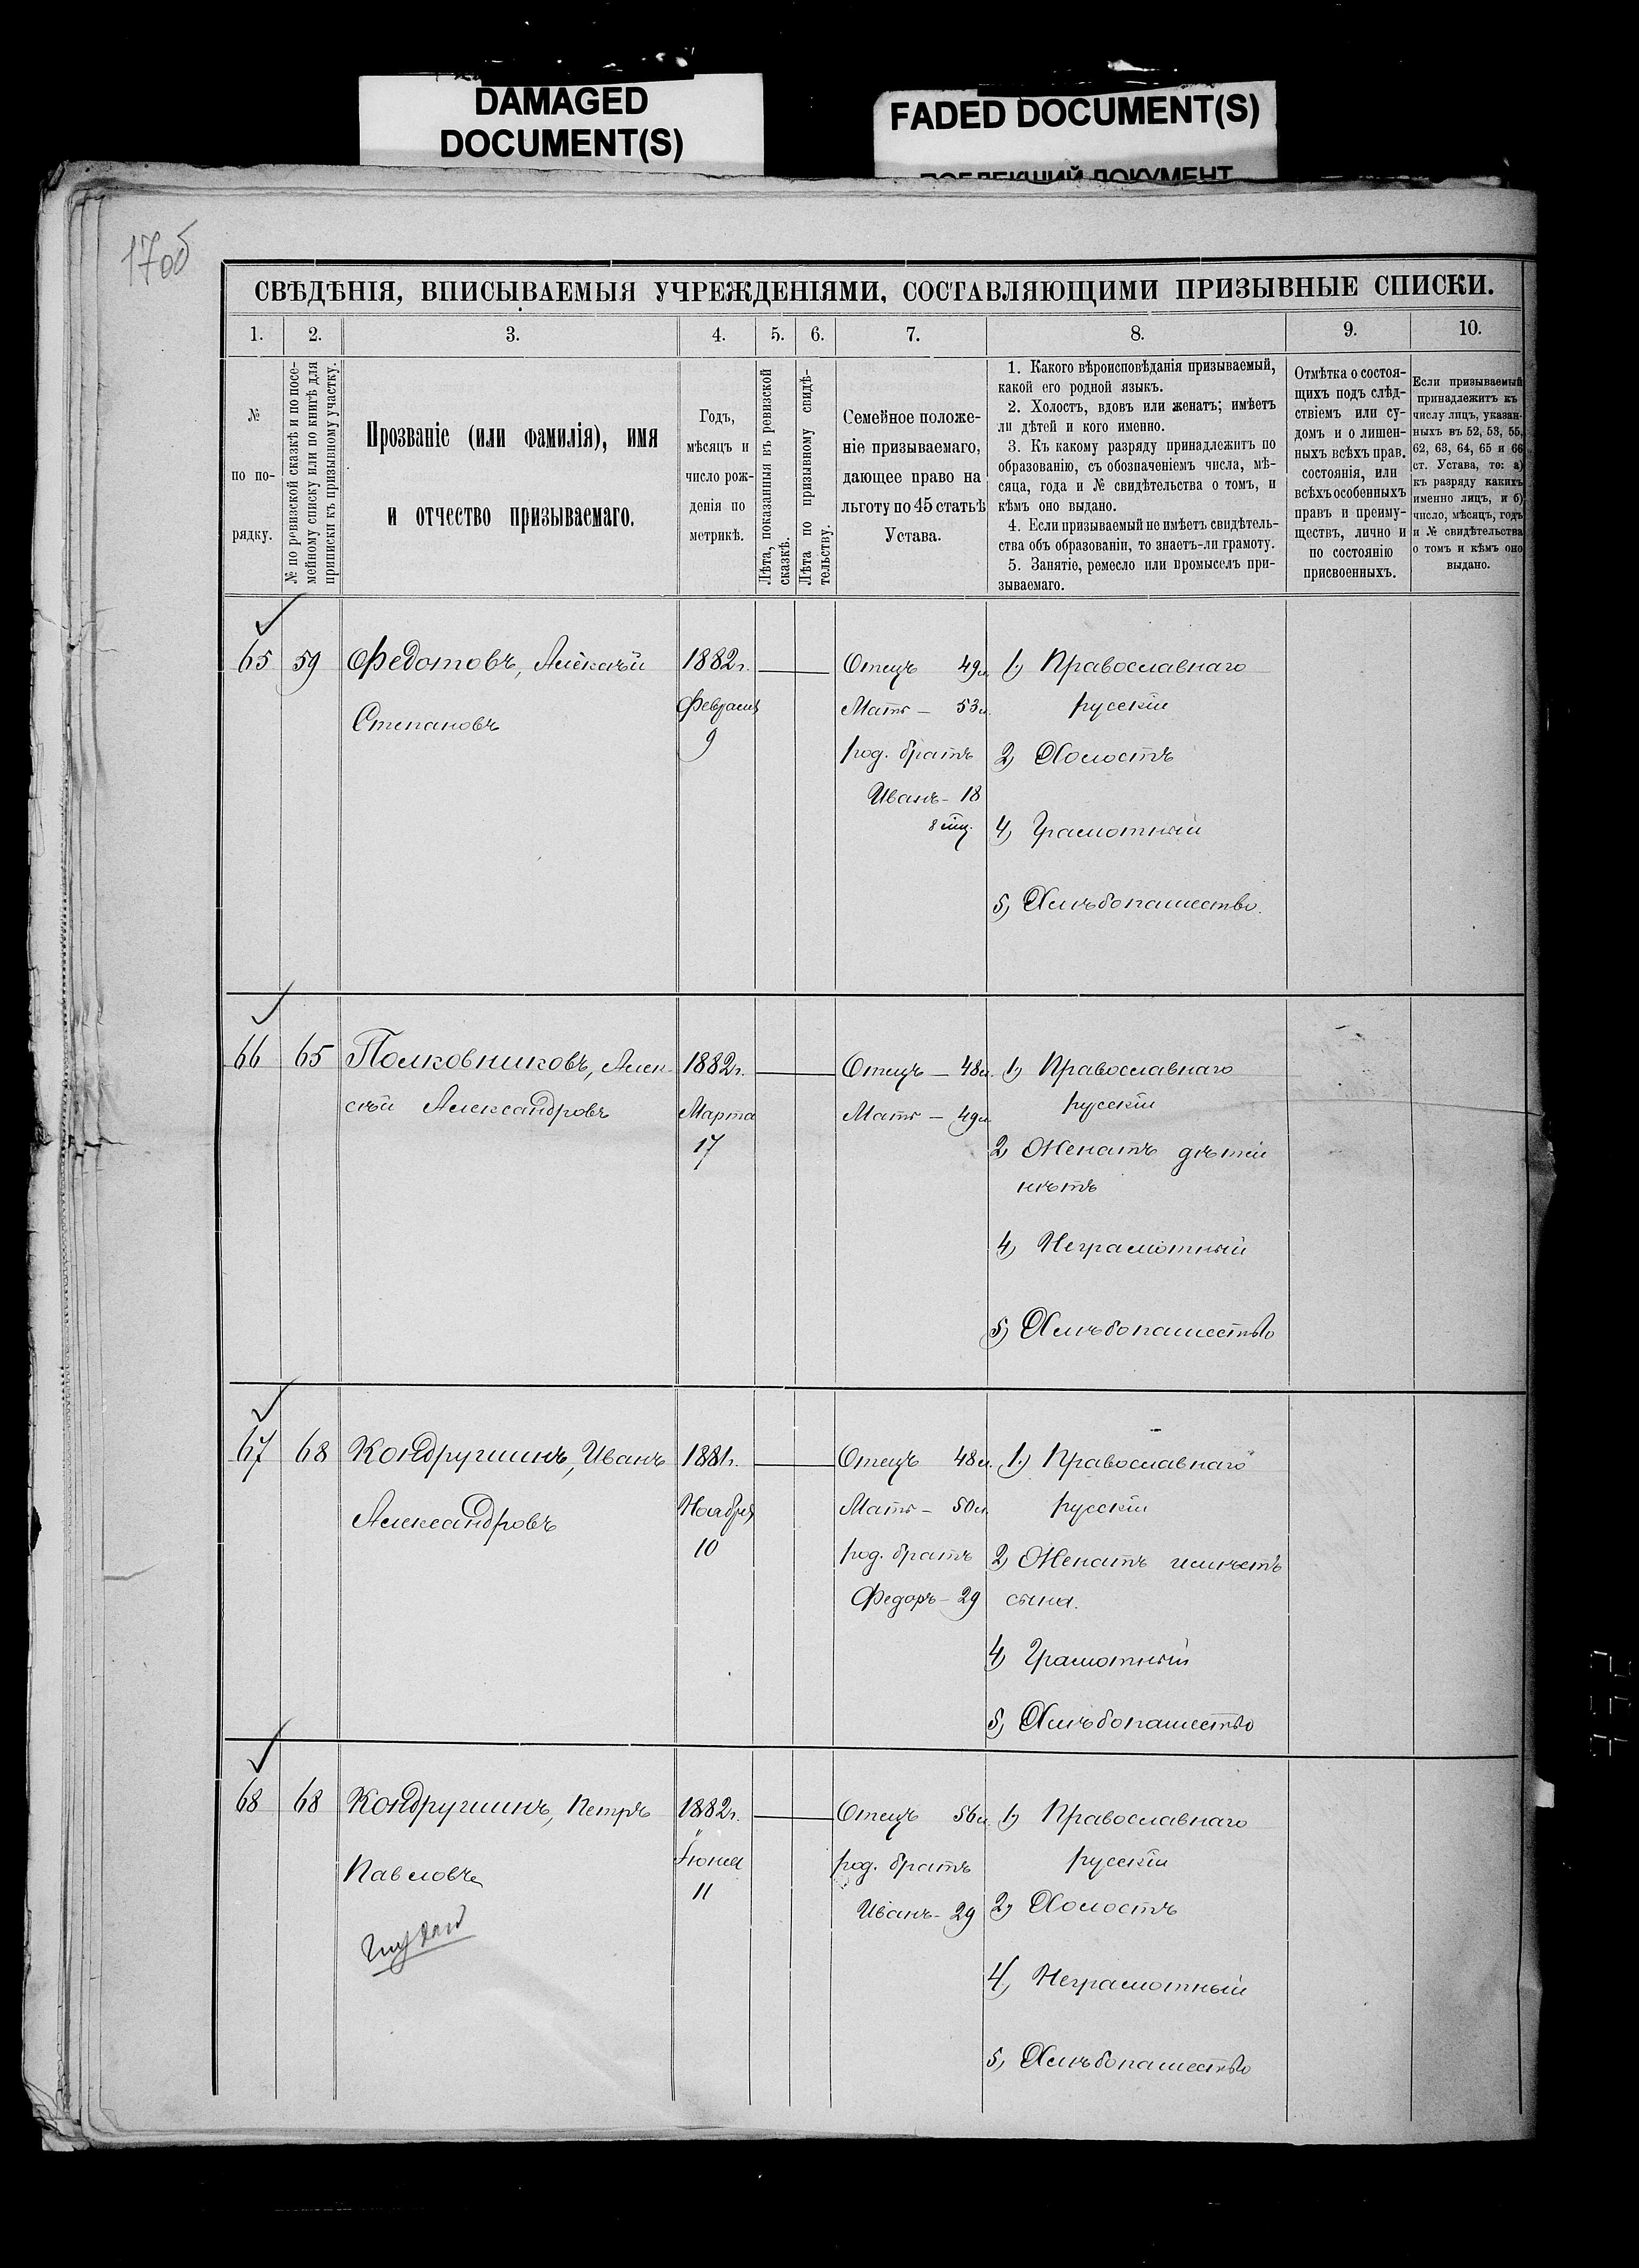 DAMAGED
DOCUMENT(S)
FADED DOCUMENT(S)
17об
СВѢДѢНІЯ, ВПИСЫВАЕМЫЯ УЧРЕЖДЕНІЯМИ, СОСТАВЛЯЮЩИМИ ПРИЗЫВНЫЕ СПИСКИ.
1. 2. 3. 4. 5. 6. 7. 8. 9. 10.
№
по по-
рядку.
№ по ревизской сказкѣ и по посе-
мейному списку или по книгѣ для
приписки къ призывному участку.
Прозваніе (или фамилія), имя
и отчество призываемаго.
Годъ,
мѣсяцъ и
число рож-
денія по
метрикѣ.
Лѣта, показанныя въ ревизской
сказкѣ.
Лѣта по призывному свидѣ-
тельству.
Семейное положе-
ніе призываемаго,
дающее право на
льготу по 45 статьѣ
Устава.
1. Какого вѣроисповѣданія призываемый,
какой его родной языкъ.
2. Холостъ, вдовъ или женатъ; имѣетъ
ли дѣтей и кого именно.
3. Къ какому разряду принадлежитъ по
образованію, съ обозначеніемъ числа, мѣ-
сяца, года и № свидѣтельства о томъ, и
кѣмъ оно выдано.
4. Если призываемый не имѣетъ свидѣтель-
ства объ образованіи, то знаетъ-ли грамоту.
5. Занятіе, ремесло или промыселъ при-
зываемаго.
Отмѣтка о состоя-
щихъ подъ слѣд-
ствіемъ или су-
домъ и о лишен-
ныхъ всѣхъ прав.
состоянія, или
всѣхъ особенныхъ
правъ и преиму-
ществъ, лично и
по состоянію
присвоенныхъ.
Если призываемый
принадлежитъ къ
числу лицъ, указан-
ныхъ въ 52, 53, 55,
62, 63, 64, 65 и 66
ст. Устава, то: а)
къ разряду какихъ
именно лицъ, и б)
число, мѣсяцъ, годъ
и № свидѣтельства
о томъ и кѣмъ оно
выдано.
65 59 Федотовъ, Алексѣй
Степановъ
1882 г.
Февраля
9
Отецъ 49 л.
Мать — 53 л.
род. братъ
Иванъ - 18
8 мц.
1) Православнаго
русскій
2) Холостъ
4) Грамотный
5) Хлѣбопашество.
66 65 Полковниковъ, Алек-
сѣй Александровъ
1882 г.
Марта
17
Отецъ — 48 л.
Мать — 49 л.
1) Православнаго
русскій
2) Женатъ дѣтей
нѣтъ
4) Неграмотный
5) Хлѣбопашество
67 68 Кондрушинъ, Иванъ
Александровъ
1881 г.
Ноября
10
Отецъ 48 л.
Мать — 50 л.
род. братъ
Федоръ - 29
1) Православнаго
русскій
2) Женатъ имѣетъ
сына.
4) Грамотный
5) Хлѣбопашество
68 68 Кондрушинъ, Петръ
Павловъ
1882 г.
Іюня
11
Отецъ 56 л.
род. братъ
Иванъ - 29
1) Православнаго
русскій
2) Холостъ
4) Неграмотный
5) Хлѣбопашество